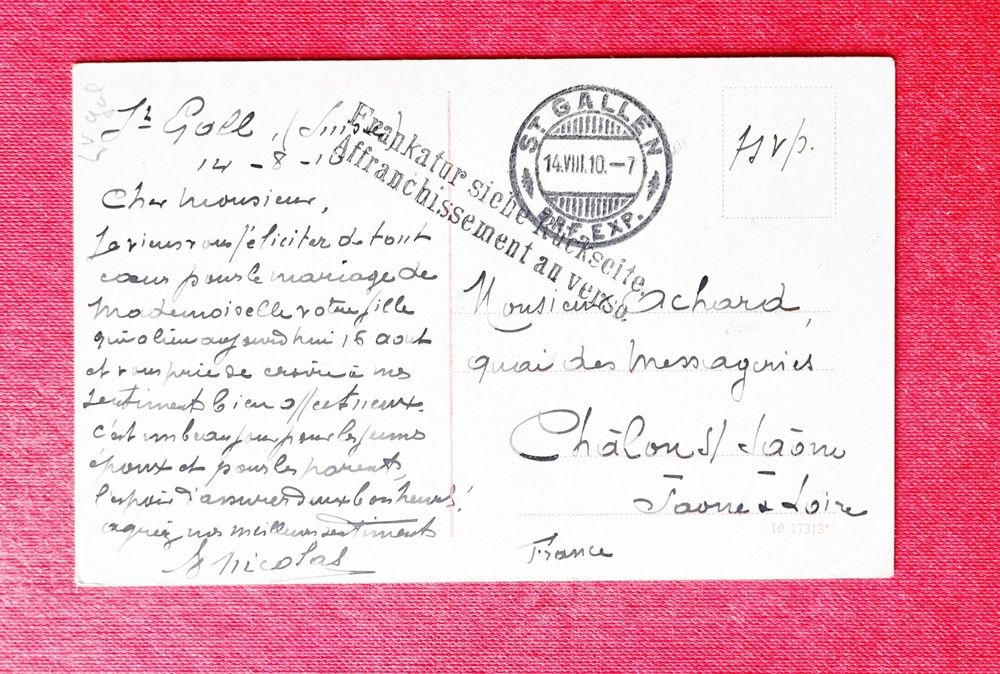 St Gall, (Suisse)
14-8-10
Cher Monsieur,
Je viens vous féliciter de tout
cœur pour le mariage de
Mademoiselle votre fille
qui a lieu aujourdhui 16 aout
et vous prie de croire à mes
sentiments bien affectueux.
c'est un beau jour pour les jeunes
époux et pour les parents,
l'espoir d'assurer deux bonheurs!
agréez mes meilleurs sentiments
Nicolas
Frankatur siehe Rückseite.
Affranchissement au verso.
ST GALLEN
14.VIII.10.-7
BRF. EXP.
TSVP.
Monsieur Achard,
quai des Messageries
Châlon s/ Saône
Saone & Loire
France
10 17313*